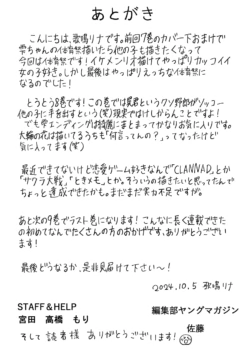 あとがき
こんにちは、歌鳴リナです。前回7巻のカバー下おまけで
雫ちゃんの体育祭描いたら他の子も描きたくなって
今回は体育祭です！イケメンリオ描けてやっぱりカッコイイ
女の子好き。しかし最後はやっぱりえっちな体育祭に
なるのでした！
とうとう8巻です！この巻では晃君というクソ野郎がゾッコー
他の子に手を出すという(笑)現実ではけしからんことですよ！
でも雫エンディングは綺麗にまとまってかなりお気に入りです。
大輪の花は描いてるうちも「何言ってんの？」ってなったけど
気に入ってます(笑)
最近できてないけど恋愛ゲーム好きなんで「CLANNAD」とか
「サクラ大戦」「ときメモ」とか。そういうの描きたいと思ってたんで
ちょっと達成できたかも。まだまだ実力不足ですが。
あと次の9巻でラスト巻になります！こんなに長く連載できた
の初めてなんでたくさんの方のおかげです。ありがとうござい
ます！
最後どうなるか、是非見届けて下さい〜！
2024.10.5 歌鳴リナ
STAFF＆HELP
宮田 高橋 もり
編集部ヤングマガジン
佐藤
そして読者様 ありがとうございます！